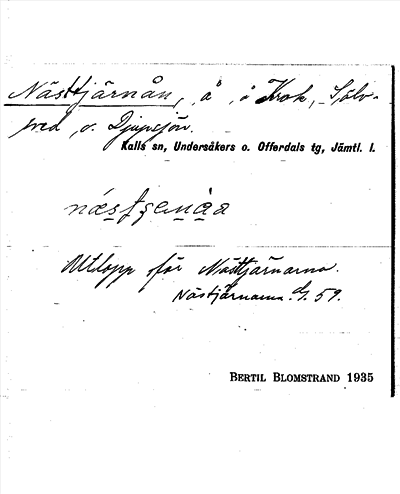 Nästtjärnån, å i Krok, Sölv-
sved o. Djupsjön.
Kalls sn, Undersåkers o. Offerdals tg, Jämtl. l.
Utlopp för Nästtjärnarna.
Nästjärnarna. 59.
BERTIL BLOMSTRAND 1935